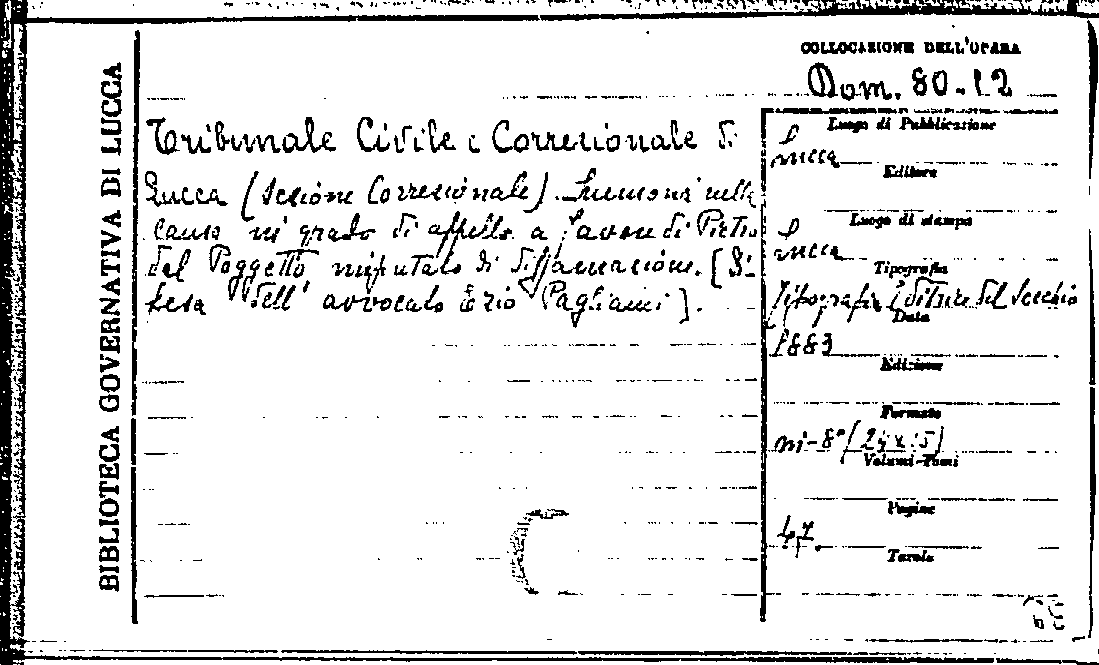 BIBLIOTECA GOVERNATIVA DI LUCCA
COLLOCAZIONE DELL'OPERA
Dom. 80.12
Tribunale Civile e Correzionale di
Lucca (Sezione Correzionale). Summonsi nella
causa in grado di appello a favore di Pietro
del Poggetto imputato di diffamazione. [Di-
fesa dell' avvocato Ezio Pagliaini].
Luogo di Pubblicazione
Lucca
Editore
Luogo di stampa
Lucca
Tipografia
Tipografia Editrice del Serchio
Data
1883
Edizione
Formato
in-8° (24x15)
Volumi-Tomi
Pagine
47.
Tavole